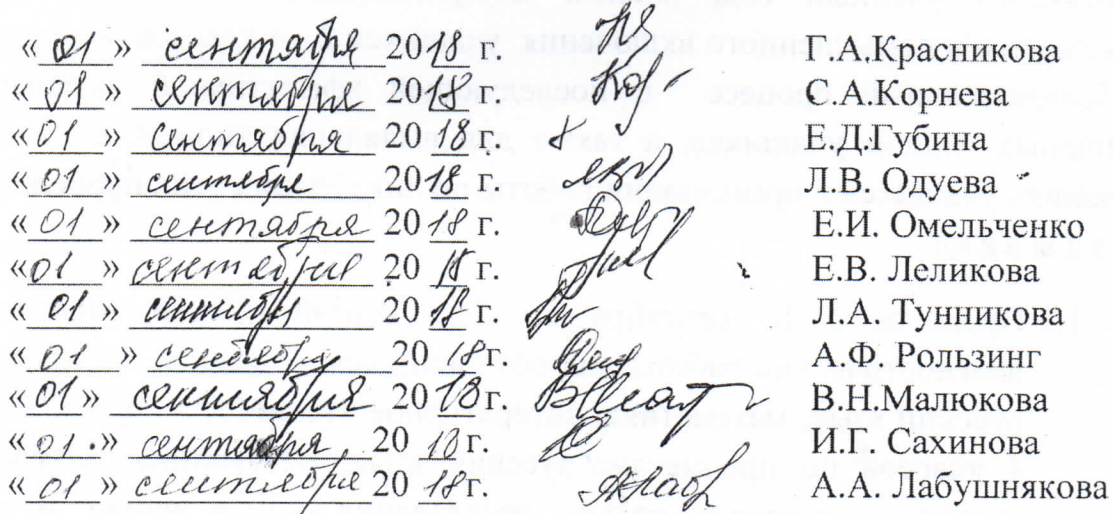 « 01 » сентября 2018 г. Г.А.Красникова
« 01 » сентября 2018 г. С.А.Корнева
« 01 » сентября 2018 г. Е.Д.Губина
« 01 » сентября 2018 г. Л.В. Одуева
« 01 » сентября 2018 г. Е.И. Омельченко
« 01 » сентября 20 18 г. Е.В. Леликова
« 01 » сентября 20 18 г. Л.А. Тунникова
« 01 » сентября 20 18 г. А.Ф. Рользинг
« 01 » сентября 20 18 г. В.Н.Малюкова
« 01 » сентября 20 18 г. И.Г. Сахинова
« 01 » сентября 20 18 г. А.А. Лабушнякова